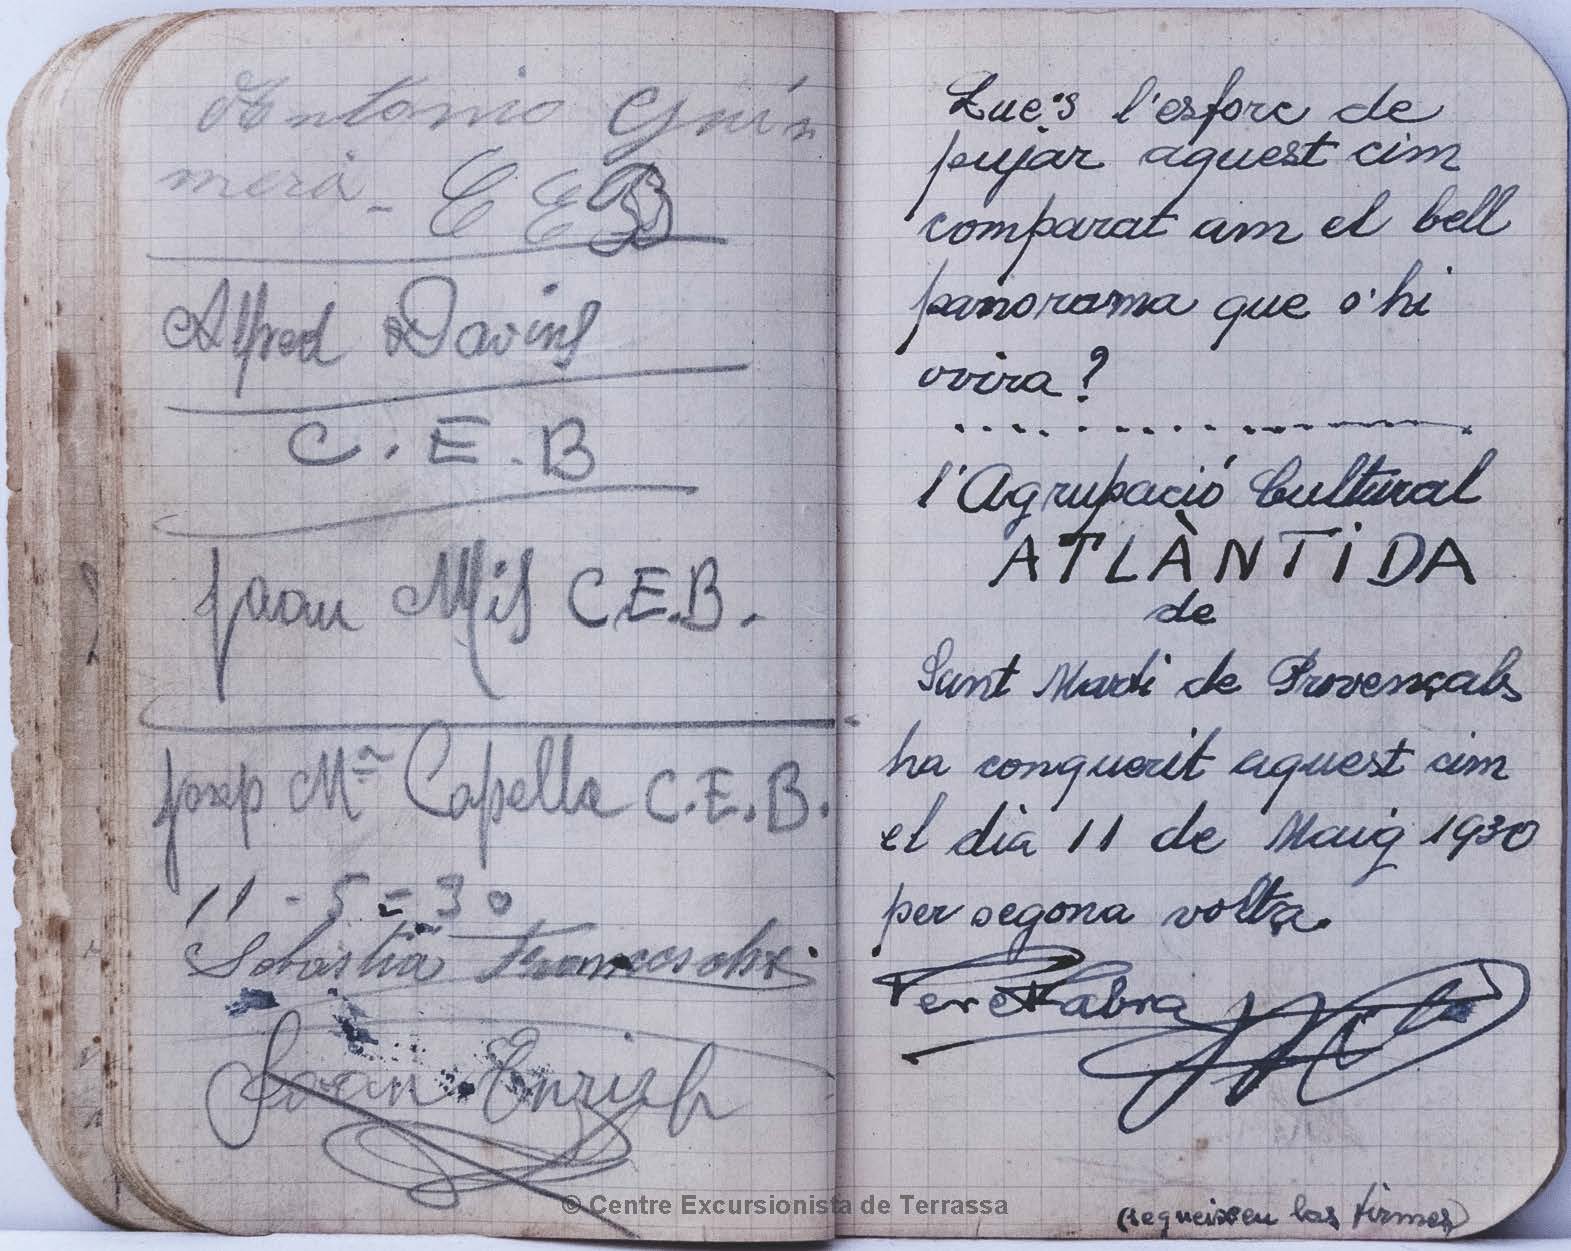 Antonio Guin
merà - C E B
Alfred Davins
C. E. B
Joan Mis C.E.B.
Josep Mª Capella C.E.B.
11 - 5 = 30
Sebastià
Joan Enrich
Que's l'esforc de
pujar aquest cim
comparat am el bell
panorama que s'hi
ovira?
l'Agrupació Cultural
ATLÀNTiDA
de
Sant Marti de Provençals
ha conquerit aquest cim
el dia 11 de Maig 1930
per segona volta.
Pere Fabra
(segueixen las firmes)
© Centre Excursionista de Terrassa